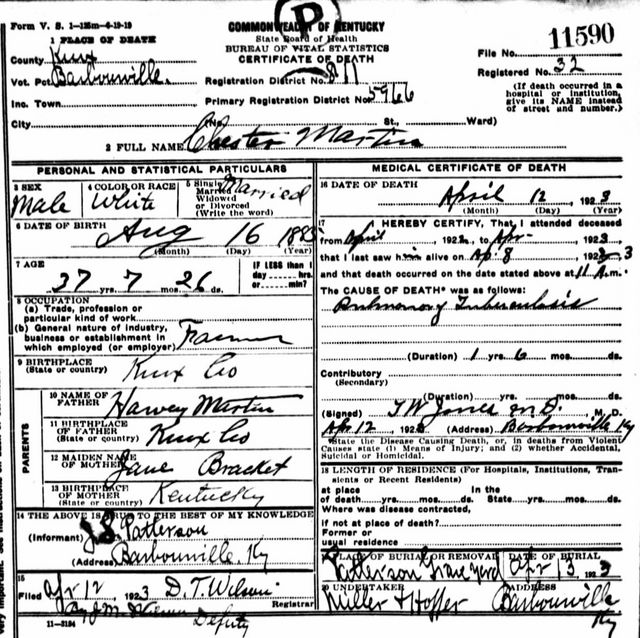 Form V. S. 1—125m—4-19-19
P
COMMONWEALTH OF KENTUCKY
State Board of Health
BUREAU OF VITAL STATISTICS
CERTIFICATE OF DEATH
File No. 11590
Registered No. 32
(If death occurred in a hospital or institution, give its NAME instead of street and number.)
1 PLACE OF DEATH
County Knox
Vot. Pct. Barbourville.
Inc. Town
City
Registration District No. 811
Primary Registration District No. 5966
(No. St., Ward)
2 FULL NAME Chester Martin
PERSONAL AND STATISTICAL PARTICULARS
3 SEX Male
4 COLOR OR RACE White
5 Single Married Widowed or Divorced (Write the word) Married
6 DATE OF BIRTH Aug 16 1883
(Month) (Day) (Year)
7 AGE 37 yrs. 7 mos. 26 ds.
IF LESS than 1 day hrs. or min?
8 OCCUPATION
(a) Trade, profession or particular kind of work
(b) General nature of industry, business or establishment in which employed (or employer) Farmer
9 BIRTHPLACE (State or country) Knox Co
PARENTS
10 NAME OF FATHER Harvey Martin
11 BIRTHPLACE OF FATHER (State or country) Knox Co
12 MAIDEN NAME OF MOTHER Jane Bracket
13 BIRTHPLACE OF MOTHER (State or country) Kentucky
14 THE ABOVE IS TRUE TO THE BEST OF MY KNOWLEDGE
(Informant) J.S. Patterson
(Address) Barbourville, Ky
15
Filed Apr 12, 1923 D. T. Wilson
Registrar
Deputy
11—3184
MEDICAL CERTIFICATE OF DEATH
16 DATE OF DEATH April 12, 1923
(Month) (Day) (Year)
17 I HEREBY CERTIFY, That I attended deceased
from April, 1922, to Apr, 1923
that I last saw him alive on Ap. 8, 192 3
and that death occurred on the date stated above at 11 A.m.
The CAUSE OF DEATH* was as follows:
Pulmonary Tuberculosis
(Duration) 1 yrs. 6 mos. ds.
Contributory (Secondary)
(Duration) yrs. mos. ds.
(Signed) T W Jones M D., M. D.
Apr 12, 1923 (Address) Barbourville Ky
*State the Disease Causing Death, or, in deaths from Violent Causes state (1) Means of Injury; and (2) whether Accidental, Suicidal or Homicidal.
18 LENGTH OF RESIDENCE (For Hospitals, Institutions, Transients or Recent Residents)
at place of death yrs. mos. ds. In the State yrs. mos. ds.
Where was disease contracted,
if not at place of death?
Former or usual residence
19 PLACE OF BURIAL OR REMOVAL Patterson Grave Yard
DATE OF BURIAL Apr 13, 1923
20 UNDERTAKER Miller & Hopper
ADDRESS Barbourville Ky